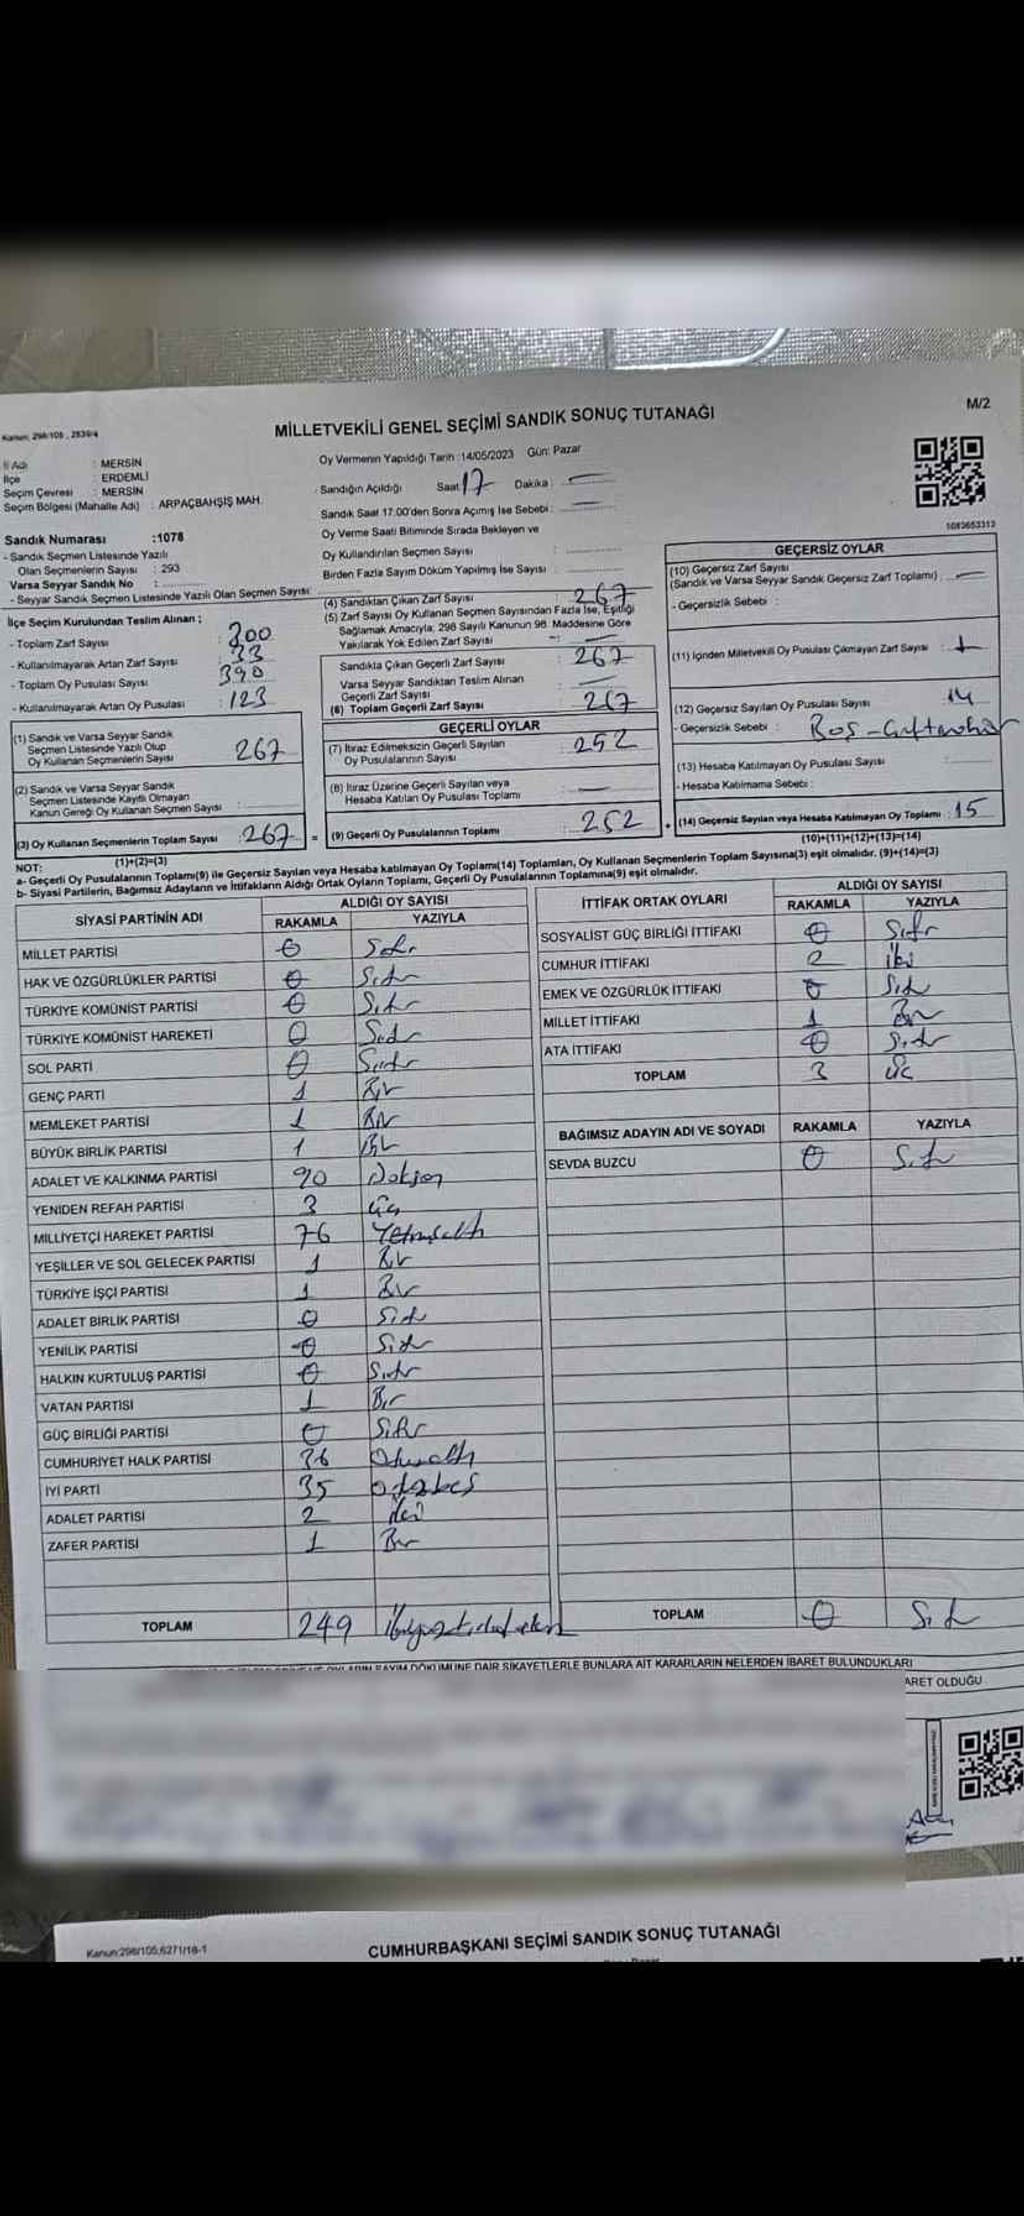 Kanun: 298/105 , 2839/4
MİLLETVEKİLİ GENEL SEÇİMİ SANDIK SONUÇ TUTANAĞI
M/2
İl Adı : MERSİN
İlçe : ERDEMLİ
Seçim Çevresi : MERSİN
Seçim Bölgesi (Mahalle Adı) : ARPAÇBAHŞİŞ MAH.
Sandık Numarası :1078
- Sandık Seçmen Listesinde Yazılı
Olan Seçmenlerin Sayısı : 293
Varsa Seyyar Sandık No :
- Seyyar Sandık Seçmen Listesinde Yazılı Olan Seçmen Sayısı:
İlçe Seçim Kurulundan Teslim Alınan ;
- Toplam Zarf Sayısı : 300
- Kullanılmayarak Artan Zarf Sayısı : 33
- Toplam Oy Pusulası Sayısı : 390
- Kullanılmayarak Artan Oy Pusulası : 123
(1) Sandık ve Varsa Seyyar Sandık
Seçmen Listesinde Yazılı Olup
Oy Kullanan Seçmenlerin Sayısı : 267
(2) Sandık ve Varsa Seyyar Sandık
Seçmen Listesinde Kayıtlı Olmayan
Kanun Gereği Oy Kullanan Seçmen Sayısı :
(3) Oy Kullanan Seçmenlerin Toplam Sayısı : 267 =
(1)+(2)=(3)
Oy Vermenin Yapıldığı Tarih :14/05/2023 Gün: Pazar
Sandığın Açıldığı Saat: 17 Dakika : —
Sandık Saat 17:00'den Sonra Açımış İse Sebebi : —
Oy Verme Saati Bitiminde Sırada Bekleyen ve
Oy Kullandırılan Seçmen Sayısı :
Birden Fazla Sayım Döküm Yapılmış İse Sayısı :
(4) Sandıktan Çıkan Zarf Sayısı : 267
(5) Zarf Sayısı Oy Kullanan Seçmen Sayısından Fazla İse, Eşitliği
Sağlamak Amacıyla; 298 Sayılı Kanunun 98. Maddesine Göre
Yakılarak Yok Edilen Zarf Sayısı : —
Sandıkta Çıkan Geçerli Zarf Sayısı : 267
Varsa Seyyar Sandıktan Teslim Alınan
Geçerli Zarf Sayısı : —
(6) Toplam Geçerli Zarf Sayısı : 267
GEÇERLİ OYLAR
(7) İtiraz Edilmeksizin Geçerli Sayılan
Oy Pusulalarının Sayısı : 252
(8) İtiraz Üzerine Geçerli Sayılan veya
Hesaba Katılan Oy Pusulası Toplamı : —
(9) Geçerli Oy Pusulalarının Toplamı : 252
1083653312
GEÇERSİZ OYLAR
(10) Geçersiz Zarf Sayısı
(Sandık ve Varsa Seyyar Sandık Geçersiz Zarf Toplamı) : —
- Geçersizlik Sebebi :
(11) İçinden Milletvekili Oy Pusulası Çıkmayan Zarf Sayısı : 1
(12) Geçersiz Sayılan Oy Pusulası Sayısı : 14
- Geçersizlik Sebebi : Boş - Çift mühür
(13) Hesaba Katılmayan Oy Pusulası Sayısı :
- Hesaba Katılmama Sebebi :
(14) Geçersiz Sayılan veya Hesaba Katılmayan Oy Toplamı : 15
(10)+(11)+(12)+(13)=(14)
NOT:
a- Geçerli Oy Pusulalarının Toplamı(9) ile Geçersiz Sayılan veya Hesaba katılmayan Oy Toplamı(14) Toplamları, Oy Kullanan Seçmenlerin Toplam Sayısına(3) eşit olmalıdır. (9)+(14)=(3)
b- Siyasi Partilerin, Bağımsız Adayların ve İttifakların Aldığı Ortak Oyların Toplamı, Geçerli Oy Pusulalarının Toplamına(9) eşit olmalıdır.
SİYASİ PARTİNİN ADI ALDIĞI OY SAYISI
RAKAMLA YAZIYLA
MİLLET PARTİSİ 0 Sıfır
HAK VE ÖZGÜRLÜKLER PARTİSİ 0 Sıfır
TÜRKİYE KOMÜNİST PARTİSİ 0 Sıfır
TÜRKİYE KOMÜNİST HAREKETİ 0 Sıfır
SOL PARTİ 0 Sıfır
GENÇ PARTİ 1 Bir
MEMLEKET PARTİSİ 1 Bir
BÜYÜK BİRLİK PARTİSİ 1 Bir
ADALET VE KALKINMA PARTİSİ 90 Doksan
YENİDEN REFAH PARTİSİ 3 Üç
MİLLİYETÇİ HAREKET PARTİSİ 76 Yetmişaltı
YEŞİLLER VE SOL GELECEK PARTİSİ 1 Bir
TÜRKİYE İŞÇİ PARTİSİ 1 Bir
ADALET BİRLİK PARTİSİ 0 Sıfır
YENİLİK PARTİSİ 0 Sıfır
HALKIN KURTULUŞ PARTİSİ 0 Sıfır
VATAN PARTİSİ 1 Bir
GÜÇ BİRLİĞİ PARTİSİ 0 Sıfır
CUMHURİYET HALK PARTİSİ 36 Otuzaltı
İYİ PARTİ 35 otuzbeş
ADALET PARTİSİ 2 iki
ZAFER PARTİSİ 1 Bir
TOPLAM 249 İkiyüzkırkdokuz
İTTİFAK ORTAK OYLARI ALDIĞI OY SAYISI
RAKAMLA YAZIYLA
SOSYALİST GÜÇ BİRLİĞİ İTTİFAKI 0 Sıfır
CUMHUR İTTİFAKI 2 iki
EMEK VE ÖZGÜRLÜK İTTİFAKI 0 Sıfır
MİLLET İTTİFAKI 1 Bir
ATA İTTİFAKI 0 Sıfır
TOPLAM 3 Üç
BAĞIMSIZ ADAYIN ADI VE SOYADI RAKAMLA YAZIYLA
SEVDA BUZCU 0 Sıfır
TOPLAM 0 Sıfır
OYLARIN SAYIM DÖKÜMÜNE DAİR ŞİKAYETLERLE BUNLARA AİT KARARLARIN NELERDEN İBARET BULUNDUKLARI
ARET OLDUĞU
Kanun:298/105,6271/18-1
CUMHURBAŞKANI SEÇİMİ SANDIK SONUÇ TUTANAĞI